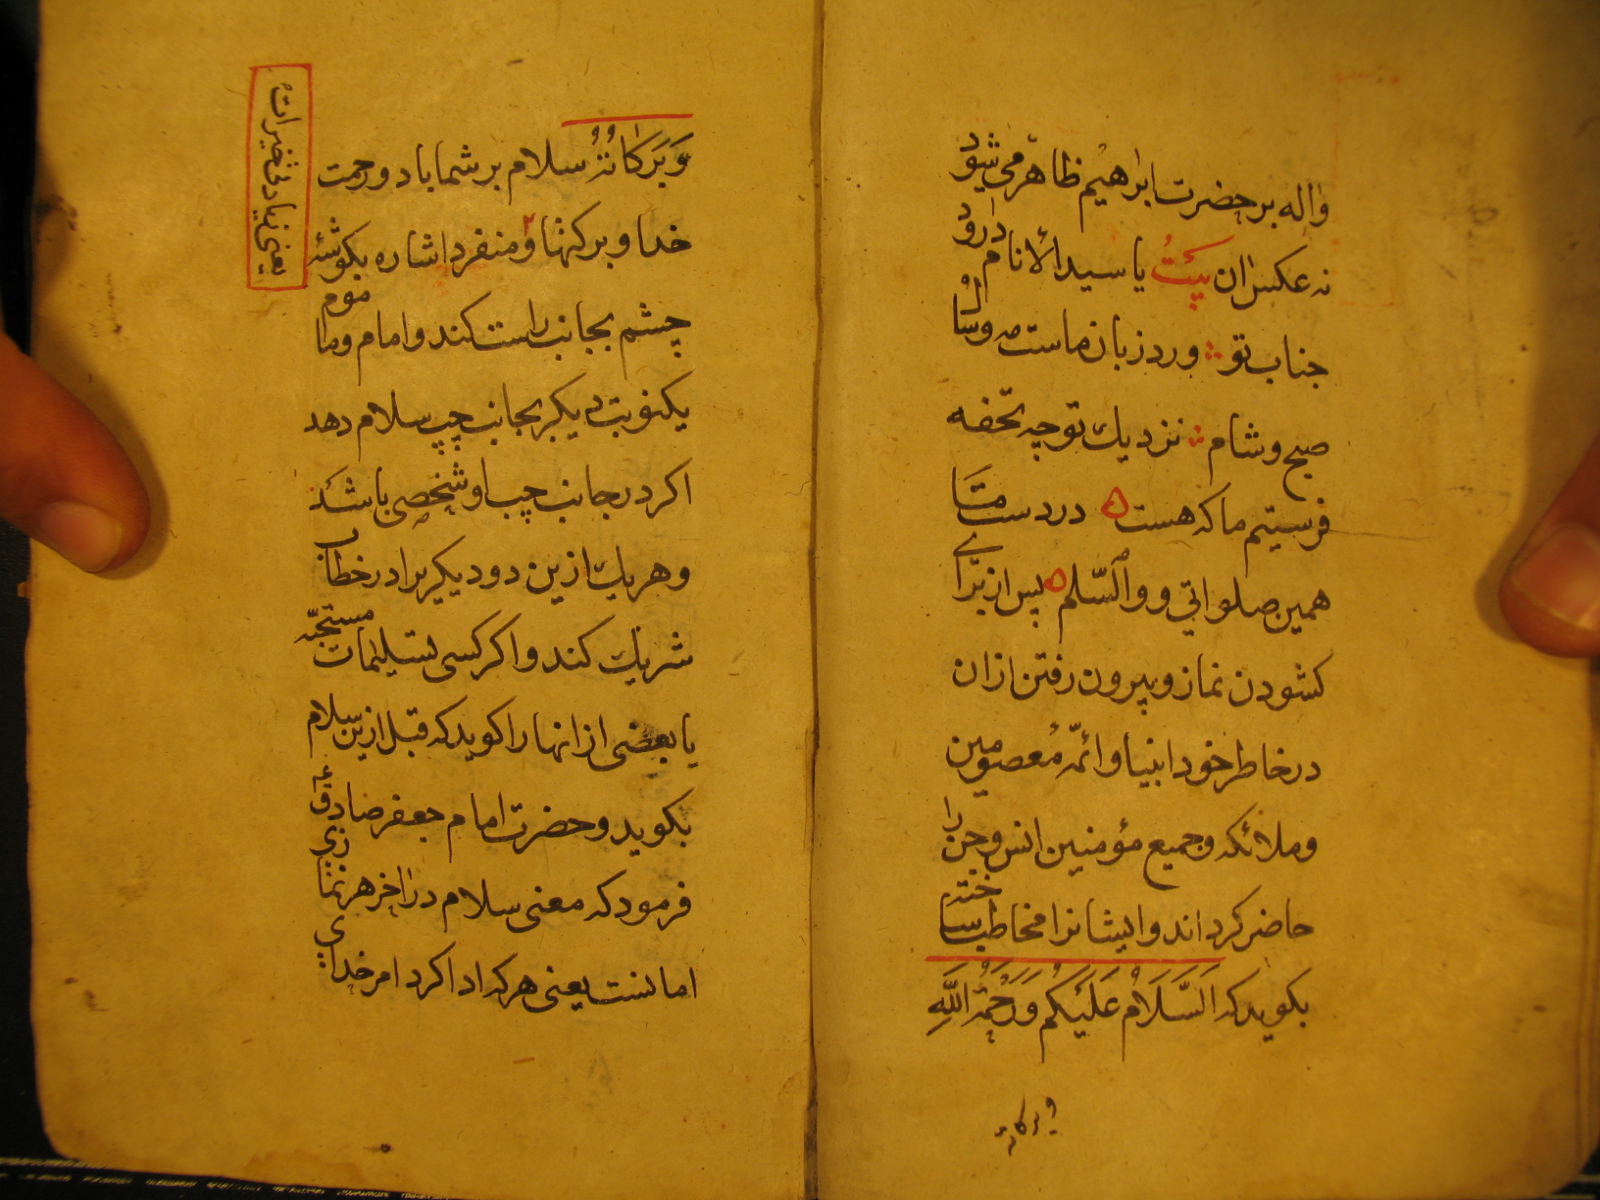 واله بر حضرت ابراهیم ظاهر می شود
نه عکس ان بیت یا سید الانام درود
جناب تو ورد زبان ماست مه و سال
صبح و شام نزدیك تو چه تحفه
فرستیم ما که هست در دست ما
همین صلواتی و والسّلم پس از برای
کشودن نماز و بیرون رفتن ازان
در خاطر خود انبیا و ائمّه معصومین
و ملائکه و جمیع مؤمنین انس و جن را
حاضر کرداند و ایشانرا مخاطب ساخته
بکوید که اَلسَّلَامُ عَلَیْکُم وَرَحْمَةُ اللَّهِ
وبرکاته
وَبَرَکَاتُهُ سلام بر شما باد و رحمت
خدا و برکتها و منفرد اشاره بکوشهٔ
چشم بجانب راست کند و امام و ماموم
یکنوبت دیکر بجانب چپ سلام دهد
اکر در جانب چپ او شخصی باشد
و هر یك ازین دو دیکریرا در خطاب
شریك کند و اکر کسی تسلیمات مستحبّه
یا بعضی از انها را کوید که قبل ازین سلام
بکوید و حضرت امام جعفر صادق ع
فرمود که معنی سلام در اخر هر نمازی
امانست یعنی هر که ادا کرد امر خدای
یعنی زیادتی خیرات